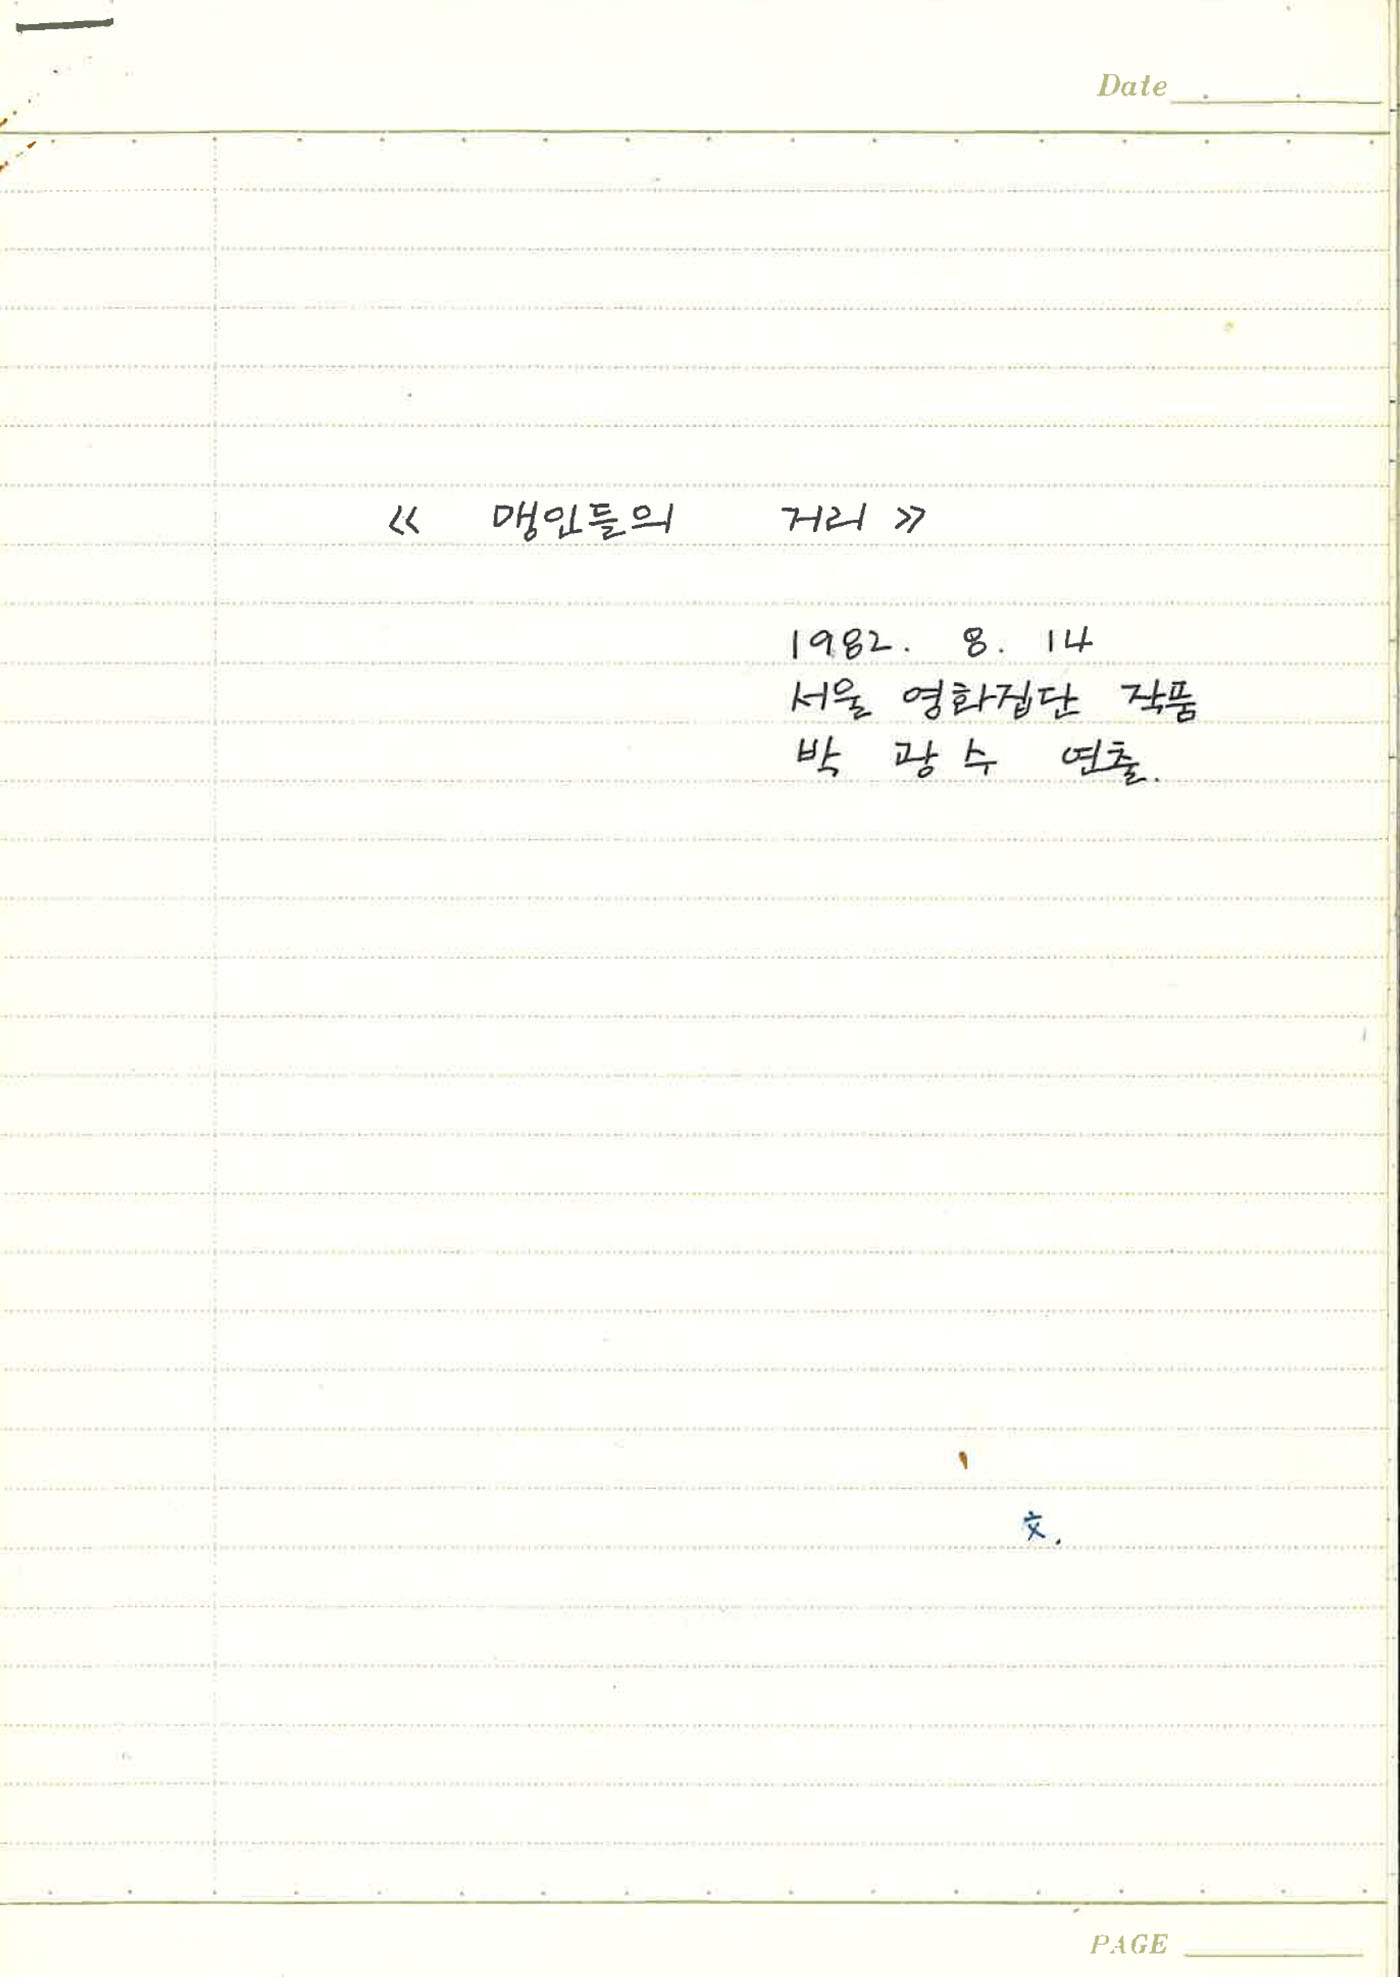 Date
《 맹인들의 거리 》
1982. 8. 14
서울 영화집단 작품
박 광 수 연출.
文.
PAGE